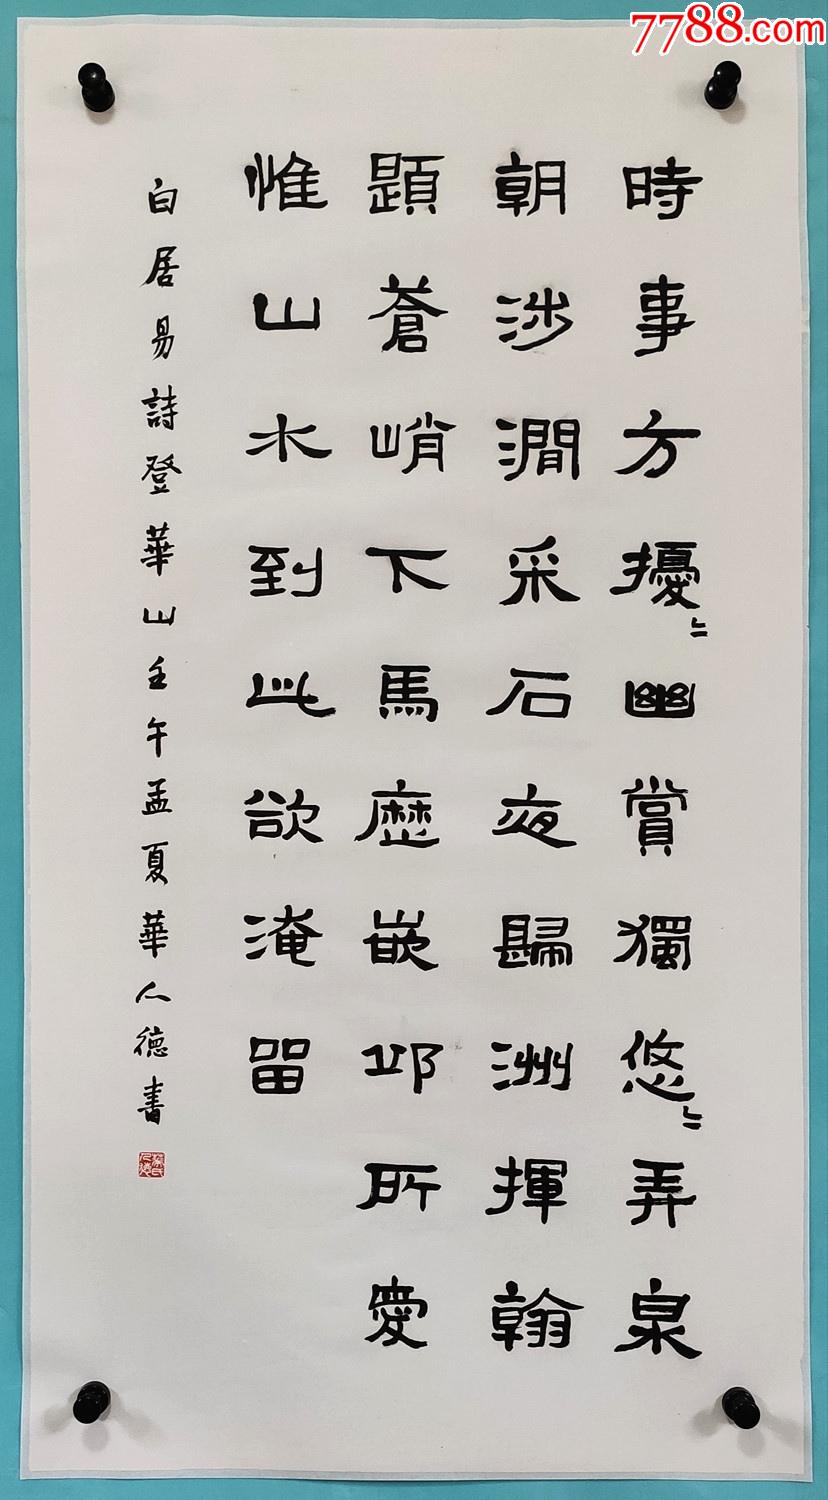 7788.com
時事方擾〻幽賞獨悠〻弄泉
朝涉澗采石夜歸洲揮翰
題蒼峭下馬歷嵌邱所愛
惟山水到此欲淹留
白居易詩登華山壬午孟夏華人德書